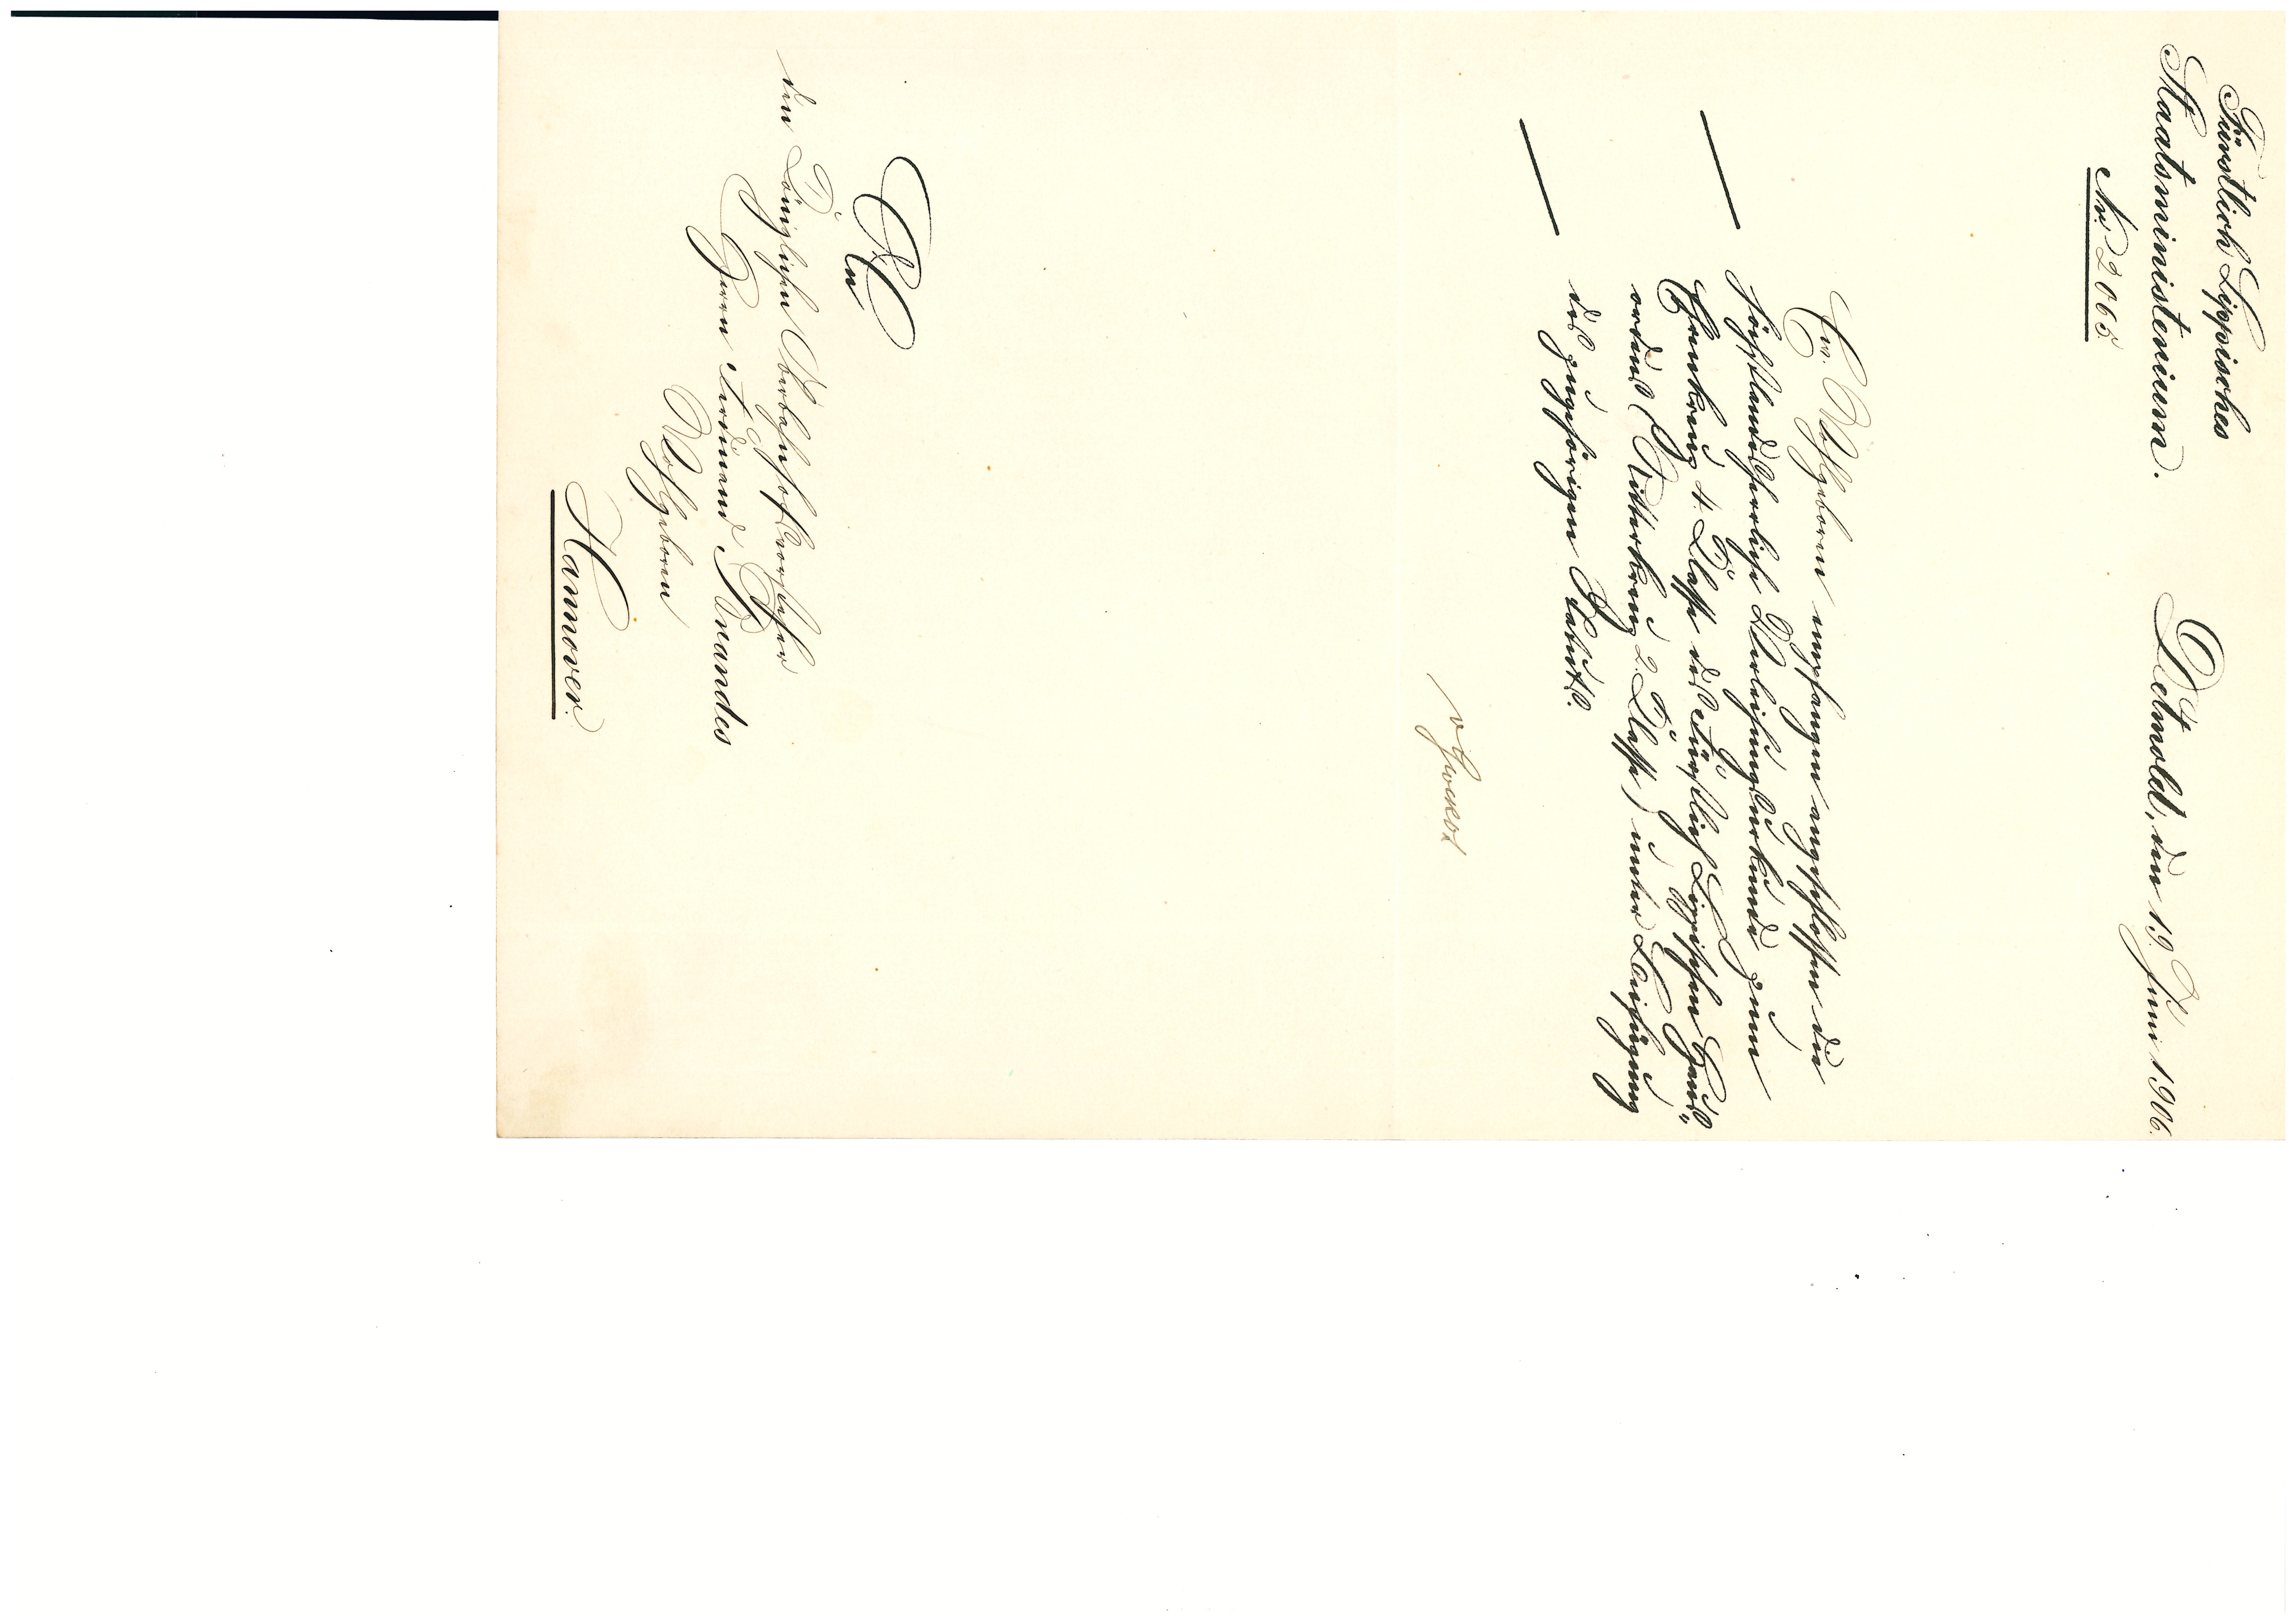 Fürstlich Lippisches
Staatsministerium.
Nr. 2065.
Detmold, den 19. Juni 1906.
Ew. Wohlgeboren empfangen angeschlossen die
höchstlandesherrliche Verleihungsurkunde zum
Ehrenkreuz 4. Klasse des Fürstlich Lippischen Haus-
ordens (Ritterkreuz 2. Klasse) unter Beifügung
des zugehörigen Statuts.
An
den Königlichen Oberbahnhofsvorsteher
Herrn Ferdinand Brandes
Wohlgeboren
Hannover.